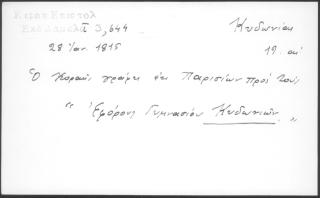 Κοραή Επιστολ
Εκδ. Δαμαλᾶ II 3,644
Κυδωνίαι
28 Ἰαν 1815
19. αἰ
Ὁ Κοραῆς γράφει ἐκ Παρισίων πρὸς τοὺς
“ Ἐφόρους Γυμνασίου Κυδωνιῶν „